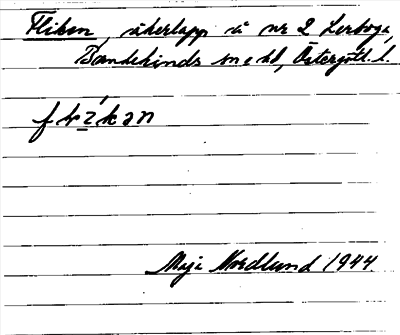 Fliken, åkerlapp å nr 2 Lerboga,
Bankekinds sn o hd, Östergötl. l.
Maja Nordlund 1944